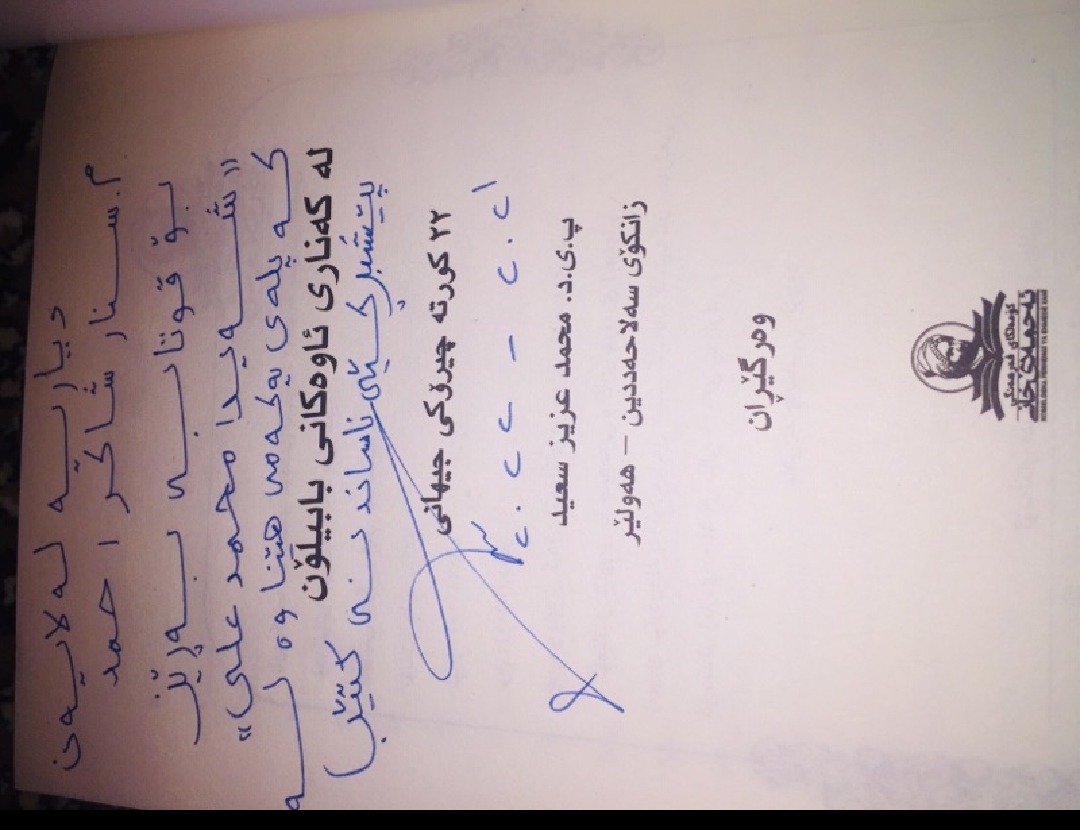 دیاریە لەلایەن
م. سنار شاکر احمد
بۆ قوتابی بەڕێز
«شەیدا محمد علی»
کە پلەی یەکەمی هێناوە لە
لە کەناری ئاوەکانی بابیلۆن
پێشبڕکێی ناساندنی کتێب
٢٢ کورتە چیرۆکی جیهانی
٢٠٢١ - ٢٠٢٢
پ.ی.د. محمد عزیز سعید
زانکۆی سەلاحەددین – هەولێر
وەرگێڕان
کۆمەڵگای فەرهەنگی
ئەحمەدی خانی
KOMELGEHA FERHENGÎ YA EHMEDÊ XANÎ